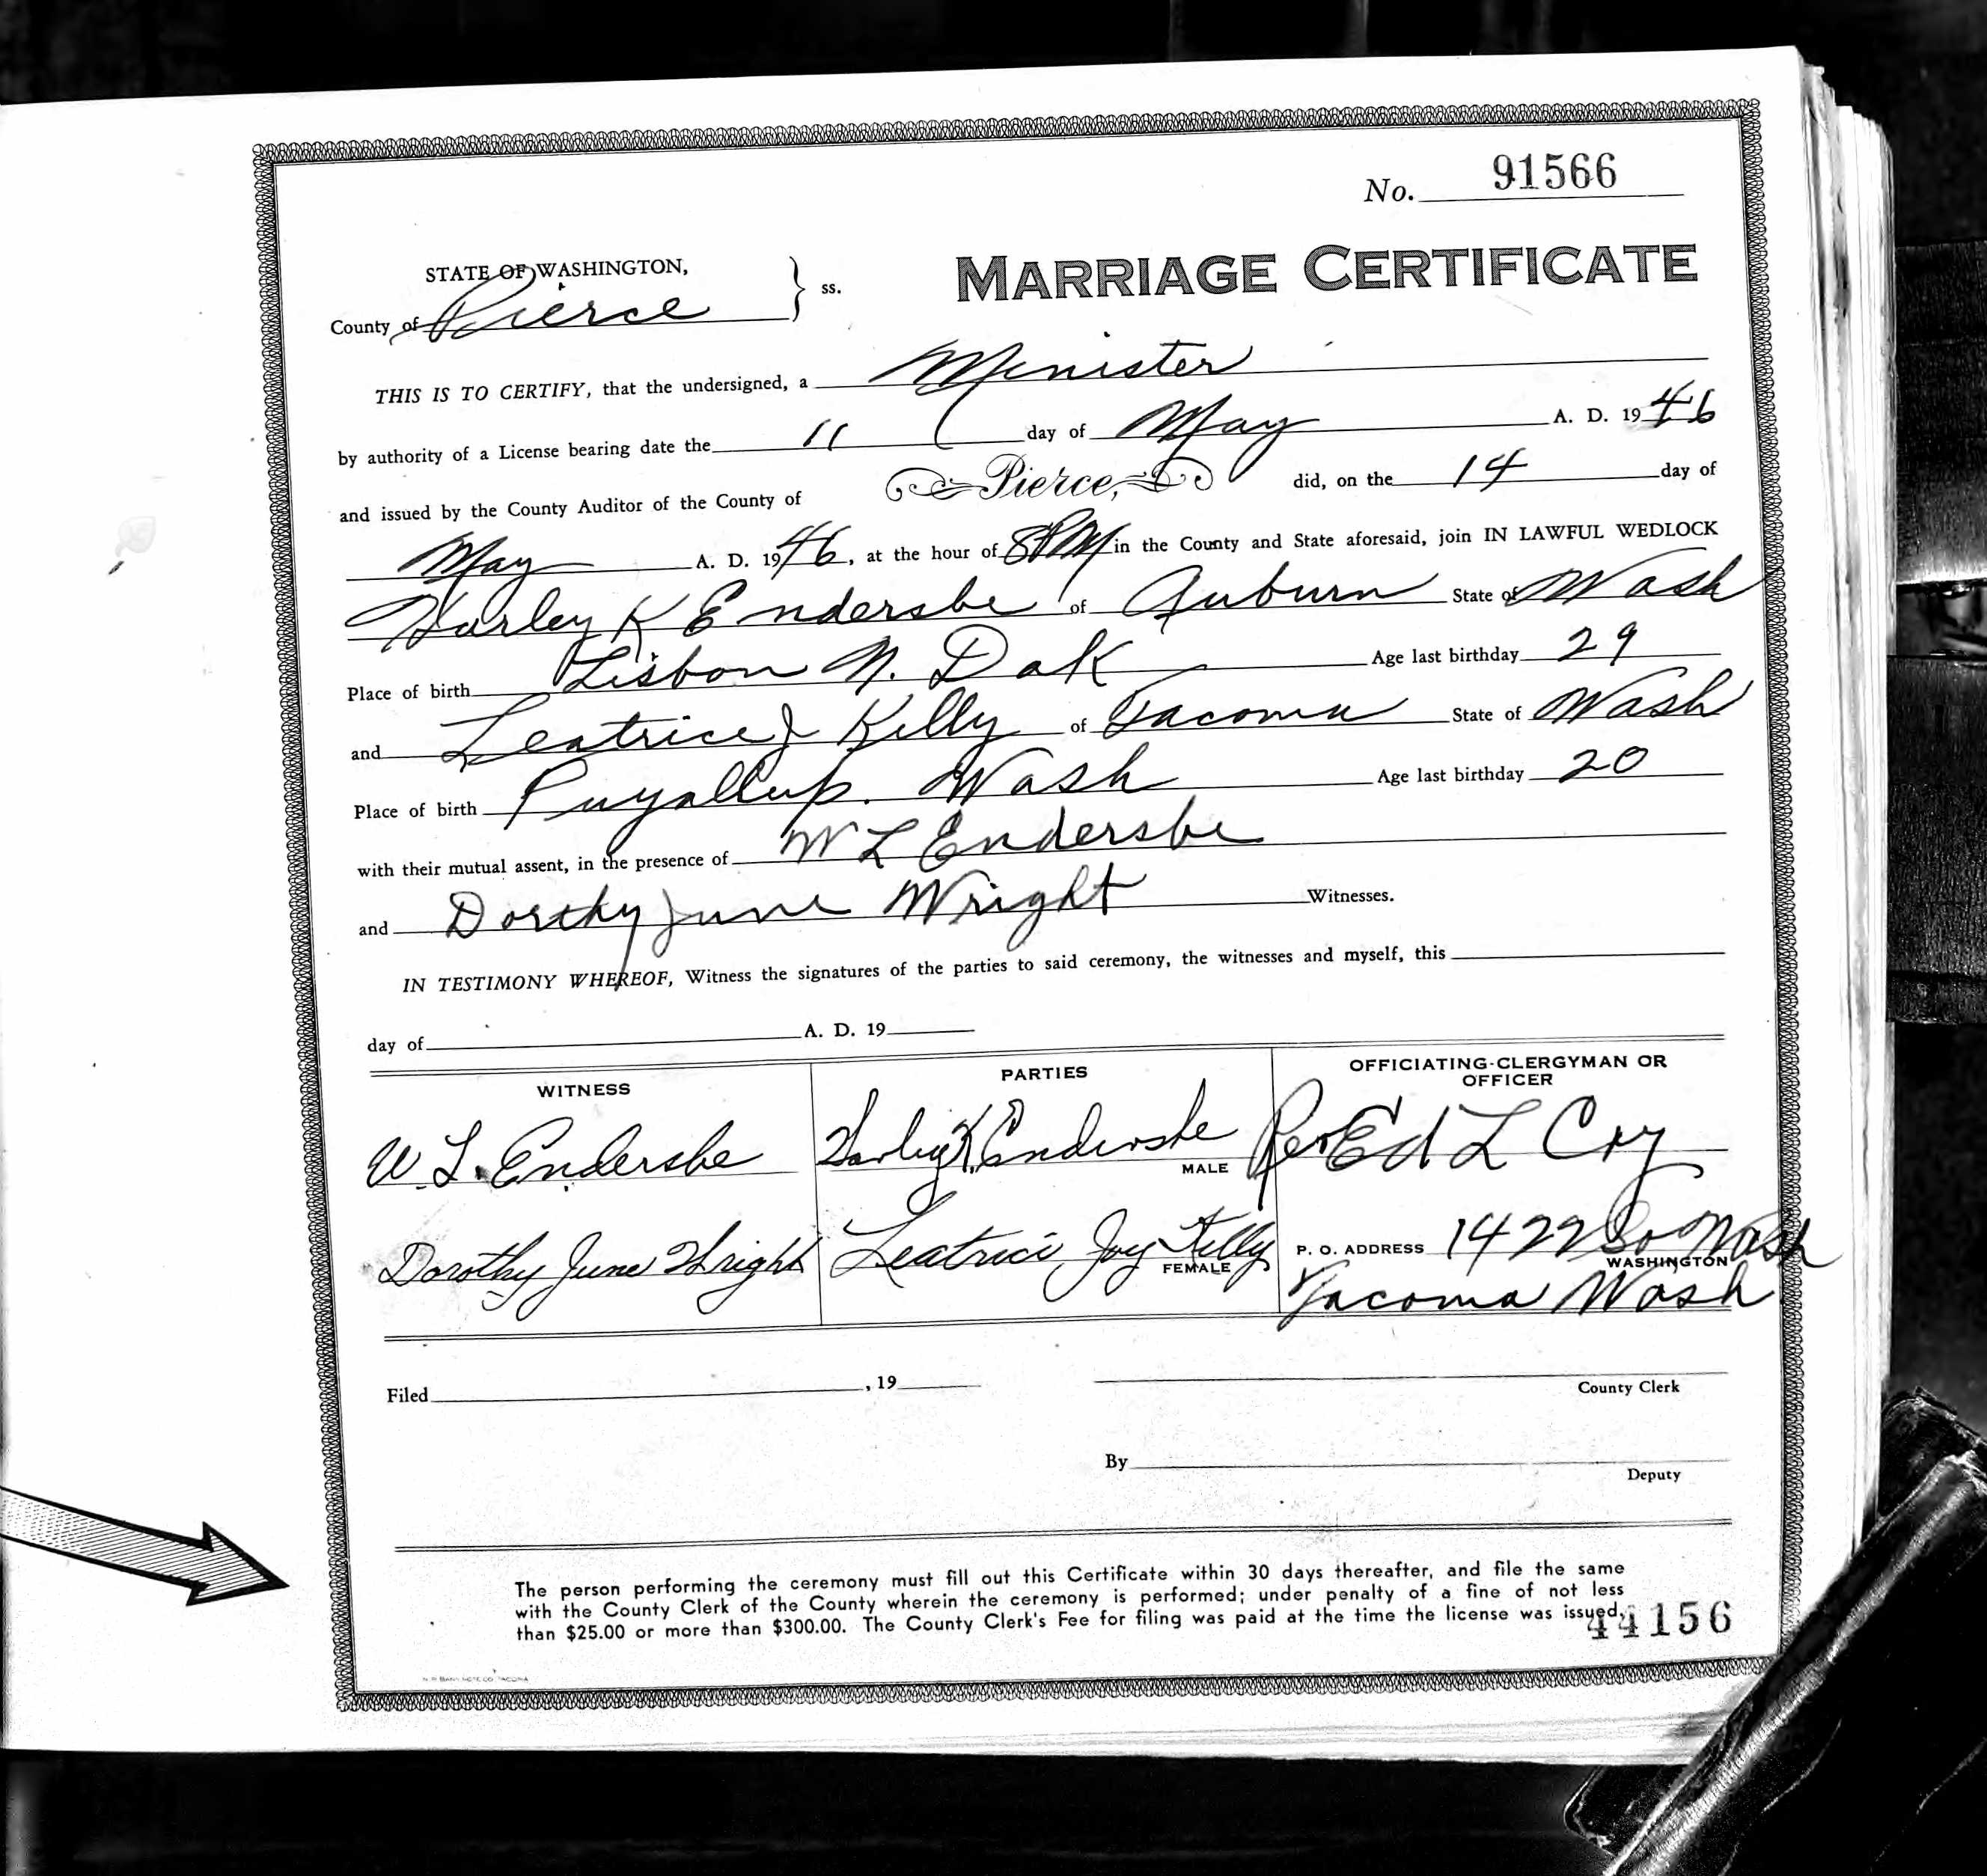 No. 91566
MARRIAGE CERTIFICATE
STATE OF WASHINGTON,
County of Pierce } ss.
THIS IS TO CERTIFY, that the undersigned, a Minister
by authority of a License bearing date the 11 day of May A. D. 1946
and issued by the County Auditor of the County of Pierce, did, on the 14 day of
May A. D. 1946, at the hour of 8 PM in the County and State aforesaid, join IN LAWFUL WEDLOCK
Harley K Endersbe of Auburn State of Wash
Place of birth Lisbon N. Dak Age last birthday 29
and Leatrice J Kelly of Tacoma State of Wash
Place of birth Puyallup. Wash Age last birthday 20
with their mutual assent, in the presence of W L Endersbe
and Dorthy June Wright Witnesses.
IN TESTIMONY WHEREOF, Witness the signatures of the parties to said ceremony, the witnesses and myself, this
day of A. D. 19
WITNESS
W. L. Endersbe
Dorothy June Wright
PARTIES
Harley K. Endersbe
MALE
Leatrice Joy Kelly
FEMALE
OFFICIATING-CLERGYMAN OR
OFFICER
Rev Ed L Cry
P. O. ADDRESS 1422 So Wash
WASHINGTON
Tacoma Wash
Filed , 19
County Clerk
By
Deputy
The person performing the ceremony must fill out this Certificate within 30 days thereafter, and file the same
with the County Clerk of the County wherein the ceremony is performed; under penalty of a fine of not less
than $25.00 or more than $300.00. The County Clerk's Fee for filing was paid at the time the license was issued.
44156